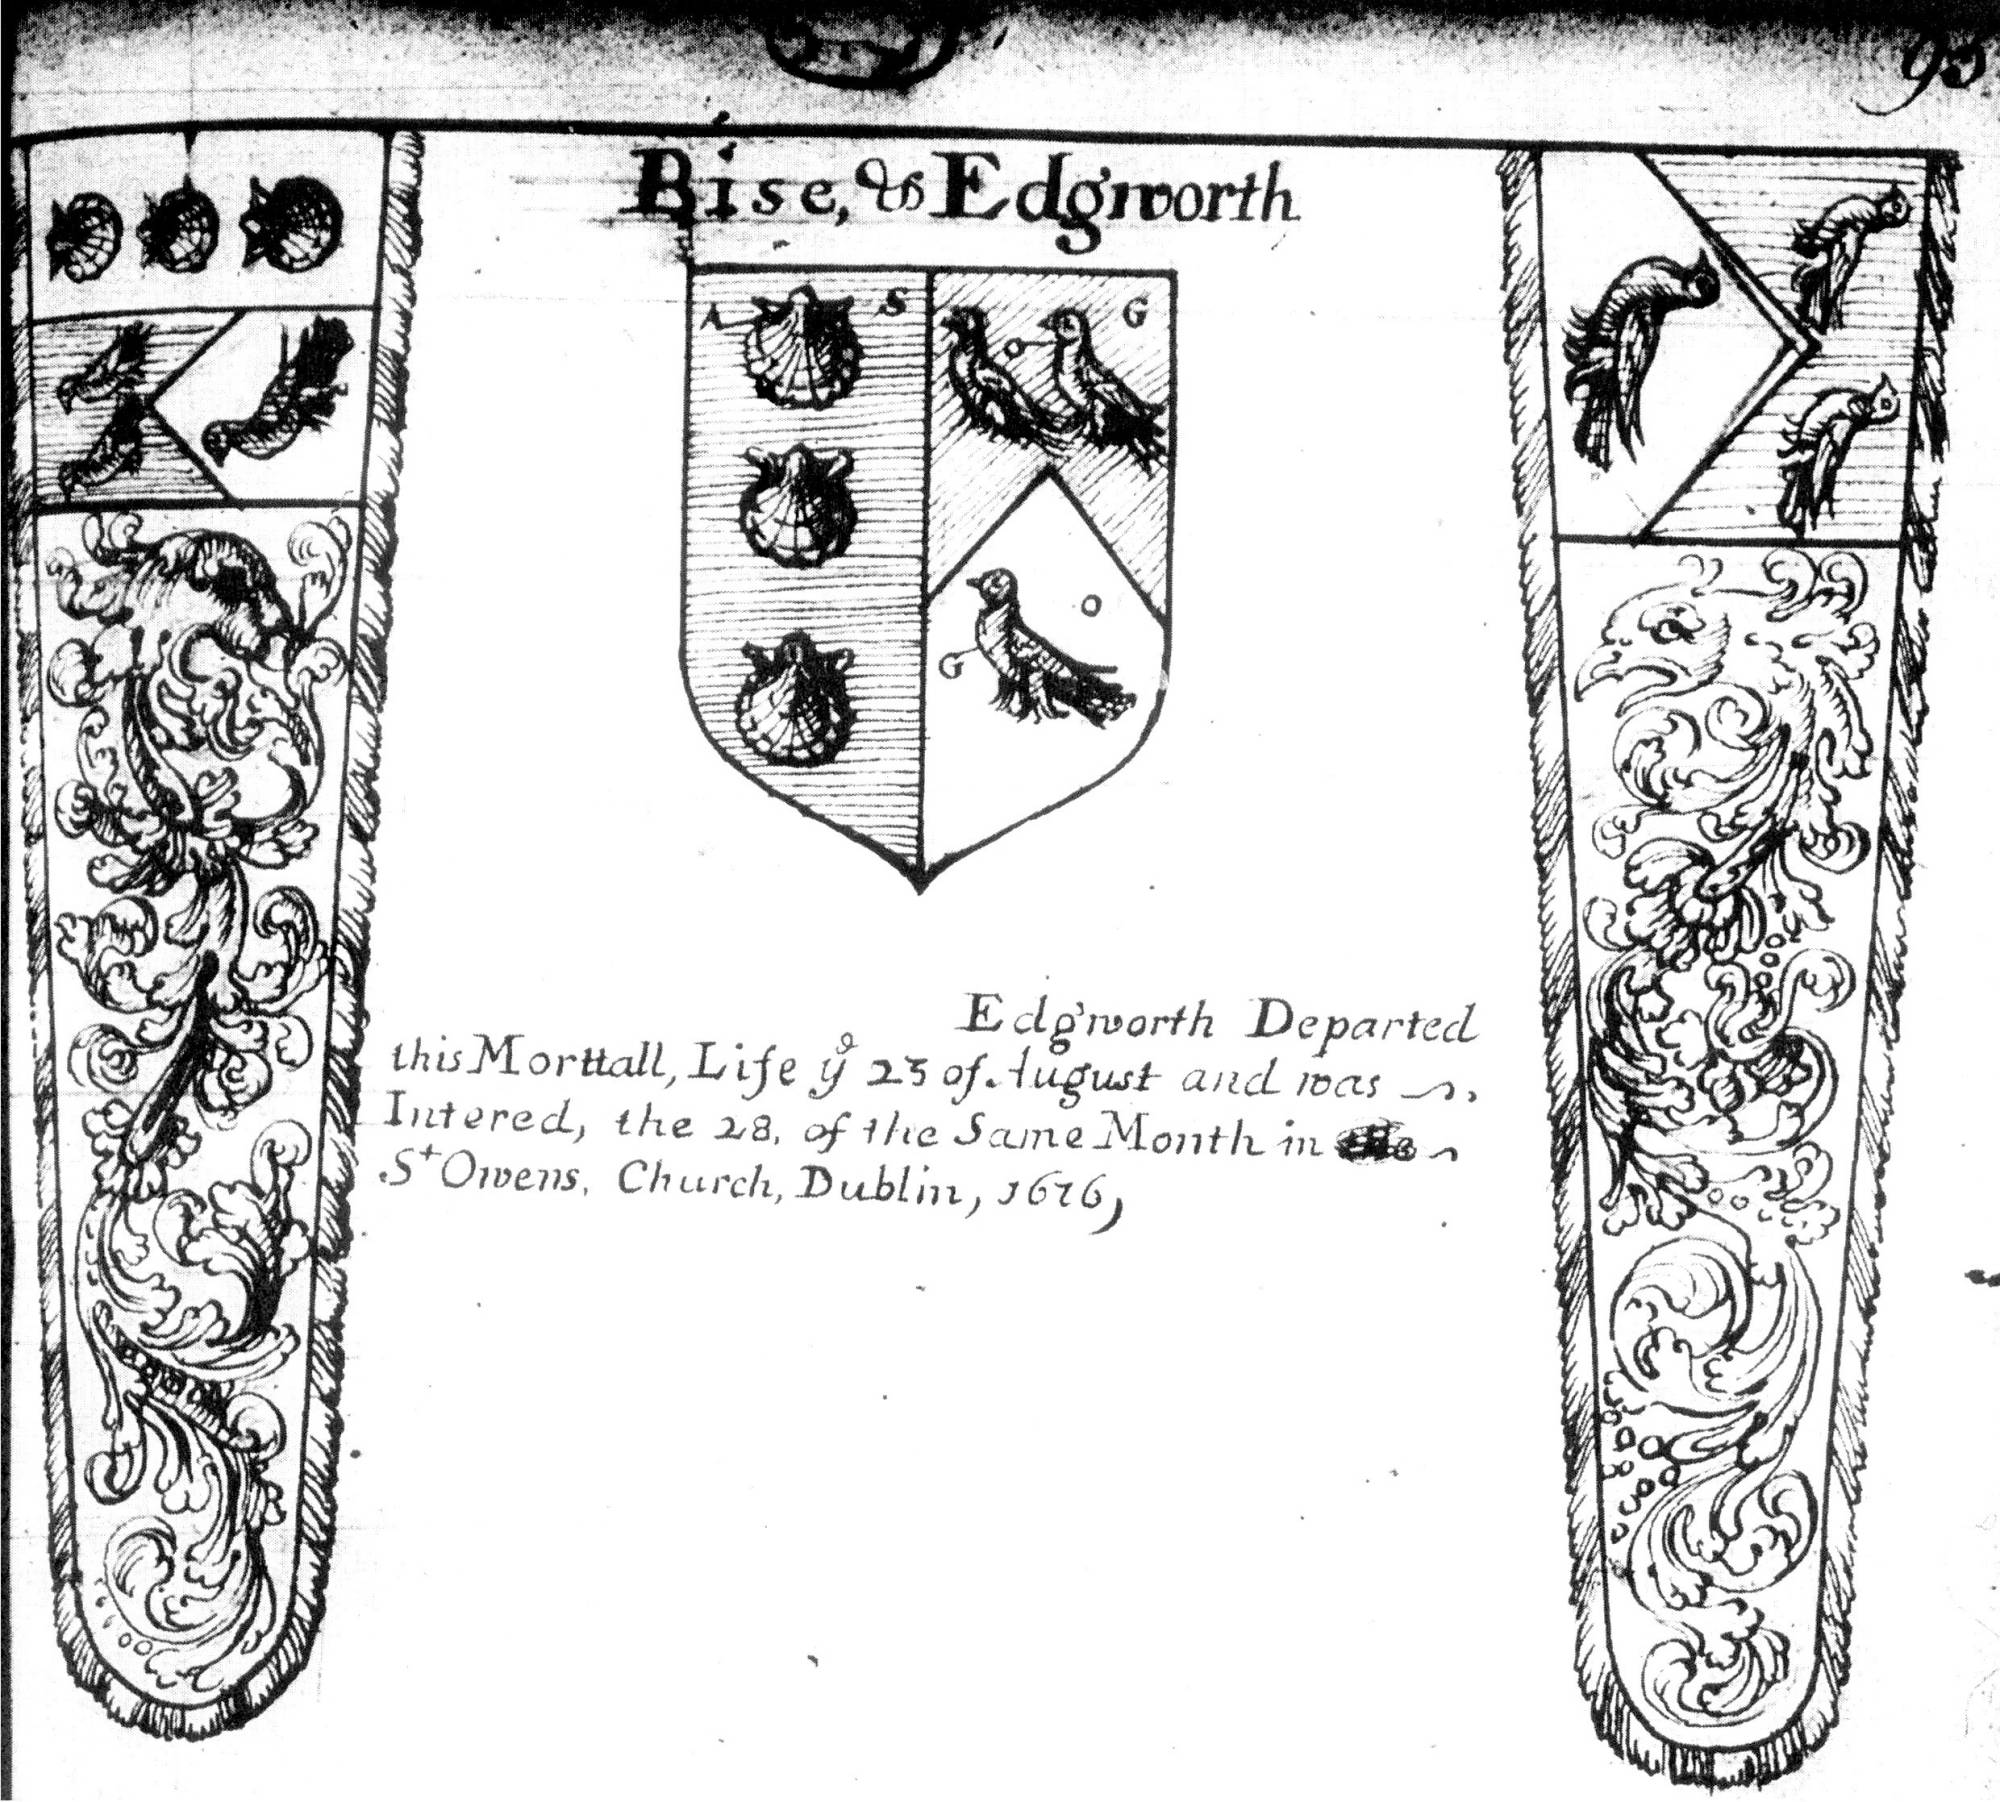 95
Bise, & Edgworth
A S G
O
O
G
Edgworth Departed
this Morttall, Life ye 23 of August and was
Intered, the 28, of the Same Month in
St Owens, Church, Dublin, 1676,